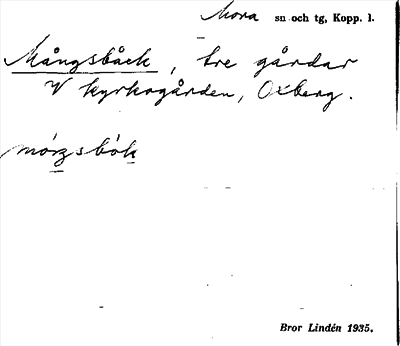 Mora sn och tg, Kopp. l.
Mångsbåck, tre gårdar
V kyrkogården, Oxberg.
Bror Lindén 1935.